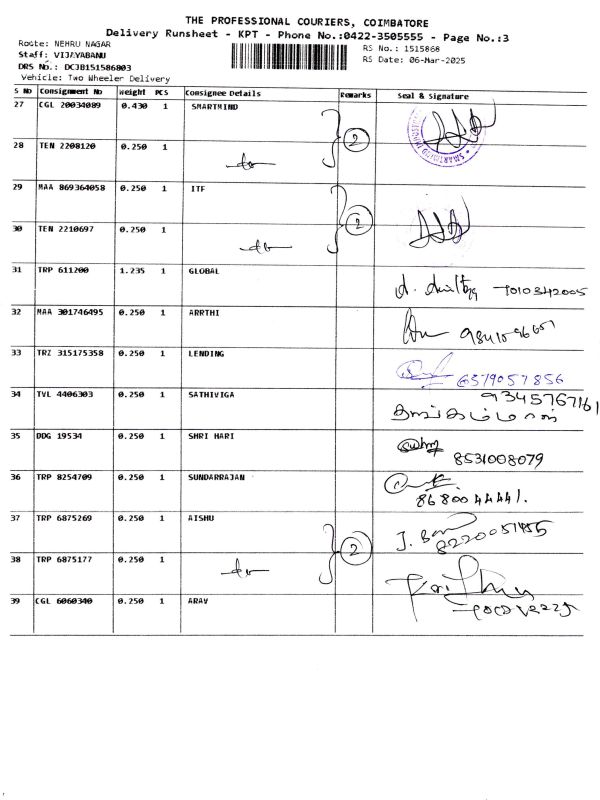 THE PROFESSIONAL COURIERS, COIMBATORE
Delivery Runsheet - KPT - Phone No.:0422-3505555 - Page No.:3
Route: NEHRU NAGAR
Staff: VIJAYABANU
DRS No.: DCJB151586803
Vehicle: Two Wheeler Delivery
RS No.: 1515868
RS Date: 06-Mar-2025
S No Consignment No Weight PCS Consignee Details Remarks Seal & Signature
27 CGL 20034089 0.430 1 SMARTMIND
2
28 TEN 2208120 0.250 1
do
29 MAA 869364058 0.250 1 ITF
2
30 TEN 2210697 0.250 1
do
31 TRP 611200 1.235 1 GLOBAL
7010342005
32 MAA 301746495 0.250 1 ARRTHI
33 TRZ 315175358 0.250 1 LENDING
6379057856
34 TVL 4406303 0.250 1 SATHIVIGA
9345767161
35 DDG 19534 0.250 1 SHRI HARI
8531008079
36 TRP 8254709 0.250 1 SUNDARRAJAN
8680044441.
37 TRP 6875269 0.250 1 AISHU
2
38 TRP 6875177 0.250 1
do
39 CGL 6060340 0.250 1 ARAV